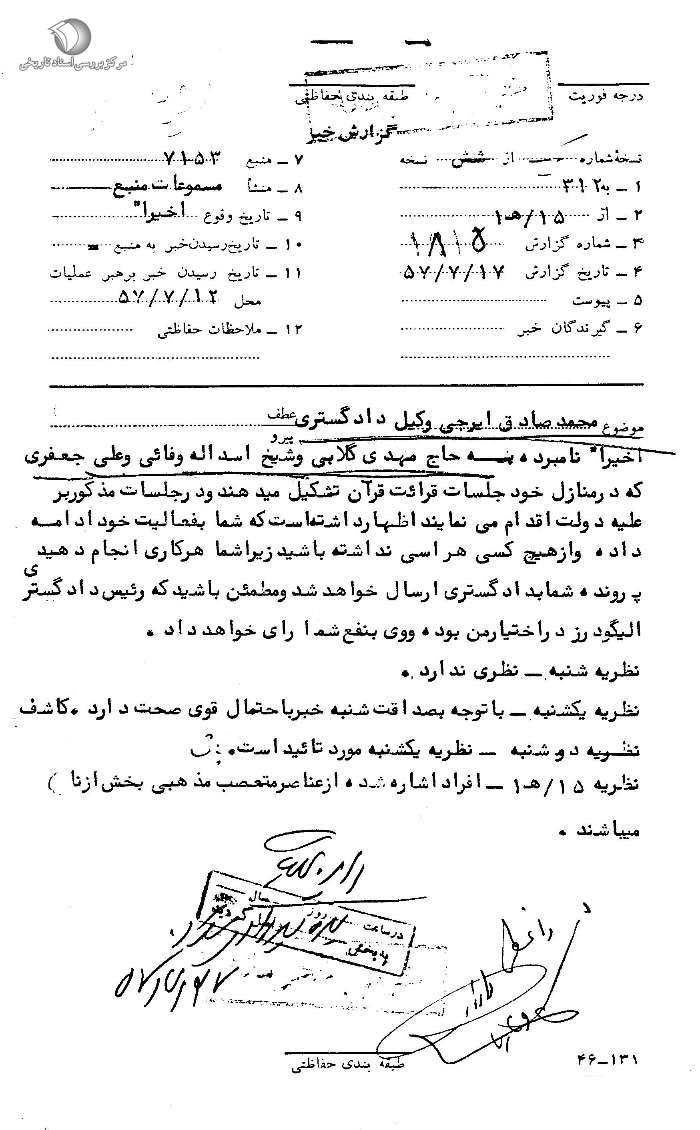 مرکز بررسی اسناد تاریخی
درجه فوریت
طبقه بندی حفاظتی
گزارش خبر
نسخهٔ شماره از شش نسخه
۱ ــ به ۳۱۲
۲ ــ از ۱۵/هـ۱
۳ ــ شماره گزارش ۱۸۱۵
۴ ــ تاریخ گزارش ۵۷/۷/۱۷
۵ ــ پیوست
۶ ــ گیرندگان خبر
۷ ــ منبع ۷۱۵۳
۸ ــ منشأ مسموعات منبع
۹ ــ تاریخ وقوع اخیرا"
۱۰ ــ تاریخ رسیدن خبر به منبع ــ
۱۱ ــ تاریخ رسیدن خبر برهبر عملیات
محل ۵۷/۷/۱۲
۱۲ ــ ملاحظات حفاظتی
موضوع محمد صادق ایرجی وکیل دادگستری عطف
پیرو
اخیرا" نامبرده به حاج مهدی گلابی وشیخ اسداله وفائی وعلی جعفری
که درمنازل خود جلسات قرائت قرآن تشکیل میدهند ودرجلسات مذکوربر
علیه دولت اقدام می نمایند اظهارداشته‌است که شما بفعالیت خود ادامه
داده وازهیچ کسی هراسی نداشته باشید زیراشما هرکاری انجام دهید
پرونده شمابدادگستری ارسال خواهد شد ومطمئن باشیدکه رئیس دادگستری
الیگودرز دراختیارمن بوده ووی بنفع شما رای خواهد داد .
نظریه شنبه ــ نظری ندارد .
نظریه یکشنبه ــ باتوجه بصداقت شنبه خبرباحتمال قوی صحت دارد .کاشف
نظریه دوشنبه ــ نظریه یکشنبه مورد تائید است.
نظریه ۱۵/هـ۱ ــ افراد اشاره شده ازعناصرمتعصب مذهبی بخش ازنا
میباشند .
در ساعت روز سال
به بخش
طبقه بندی حفاظتی
۴۶-۱۳۱